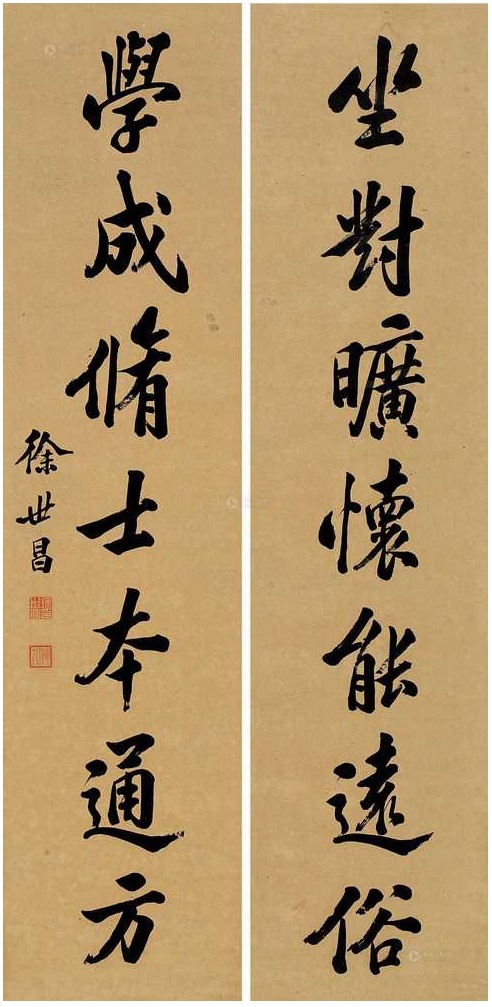 坐對曠懷能遠俗
學成脩士本通方
徐世昌